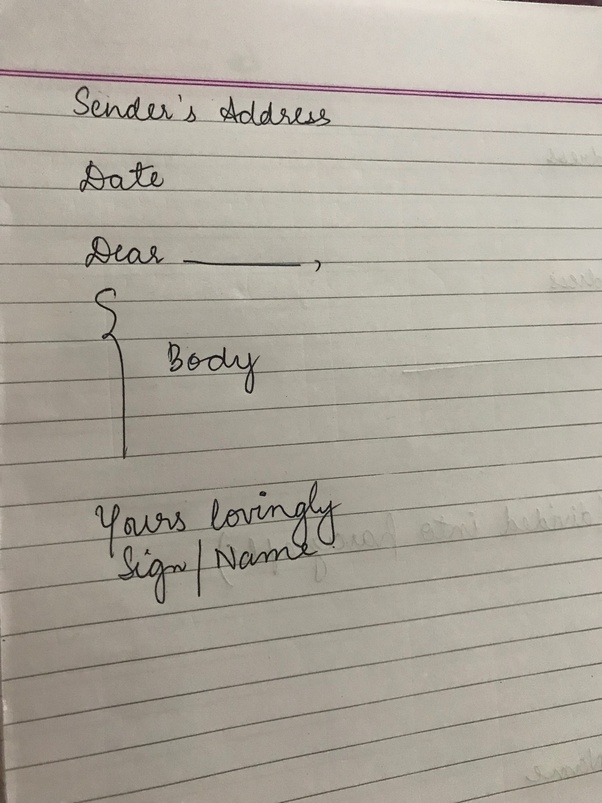 Sender's Address
Date
Dear ________,
Body
Yours lovingly
Sign/Name